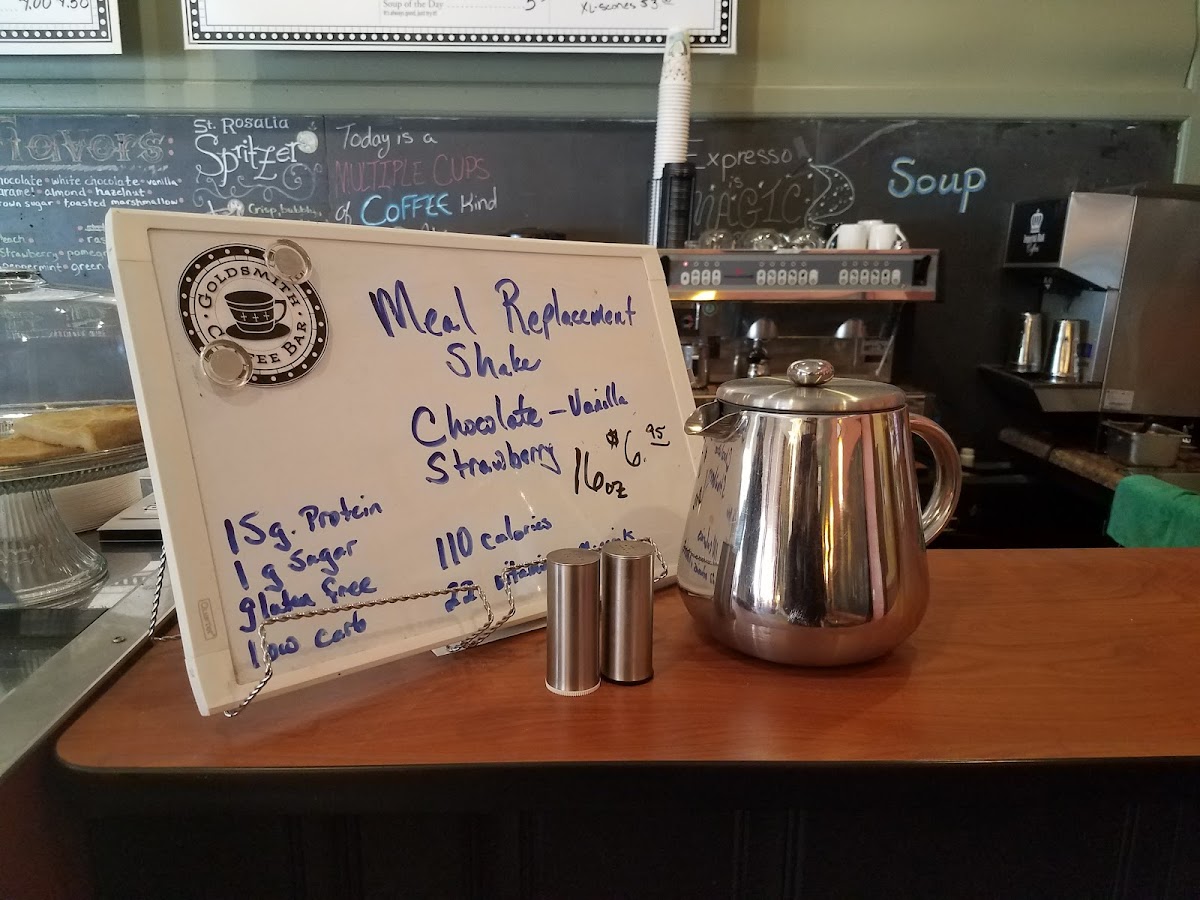 4.00 4.50
Soup of the Day
It's always good, just try it!
5
XL-scones $3
Flavors:
chocolate • white chocolate • vanilla •
almond • hazelnut •
brown sugar • toasted marshmallow •
Strawberry •
green
St. Rosalia
Spritzer
Crisp, bubbly
Today is a
MULTIPLE CUPS
of COFFEE Kind
Expresso
is
MAGIC
Soup
GOLDSMITH
COFFEE BAR
Meal Replacement
Shake
Chocolate - Vanilla
Strawberry
16 oz
$6.95
15g. Protein
1 g Sugar
gluten free
low carb
110 calories
22
Quartet